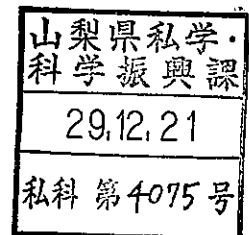 山梨県私学・
科学振興課
29.12.21
私科 第4075号